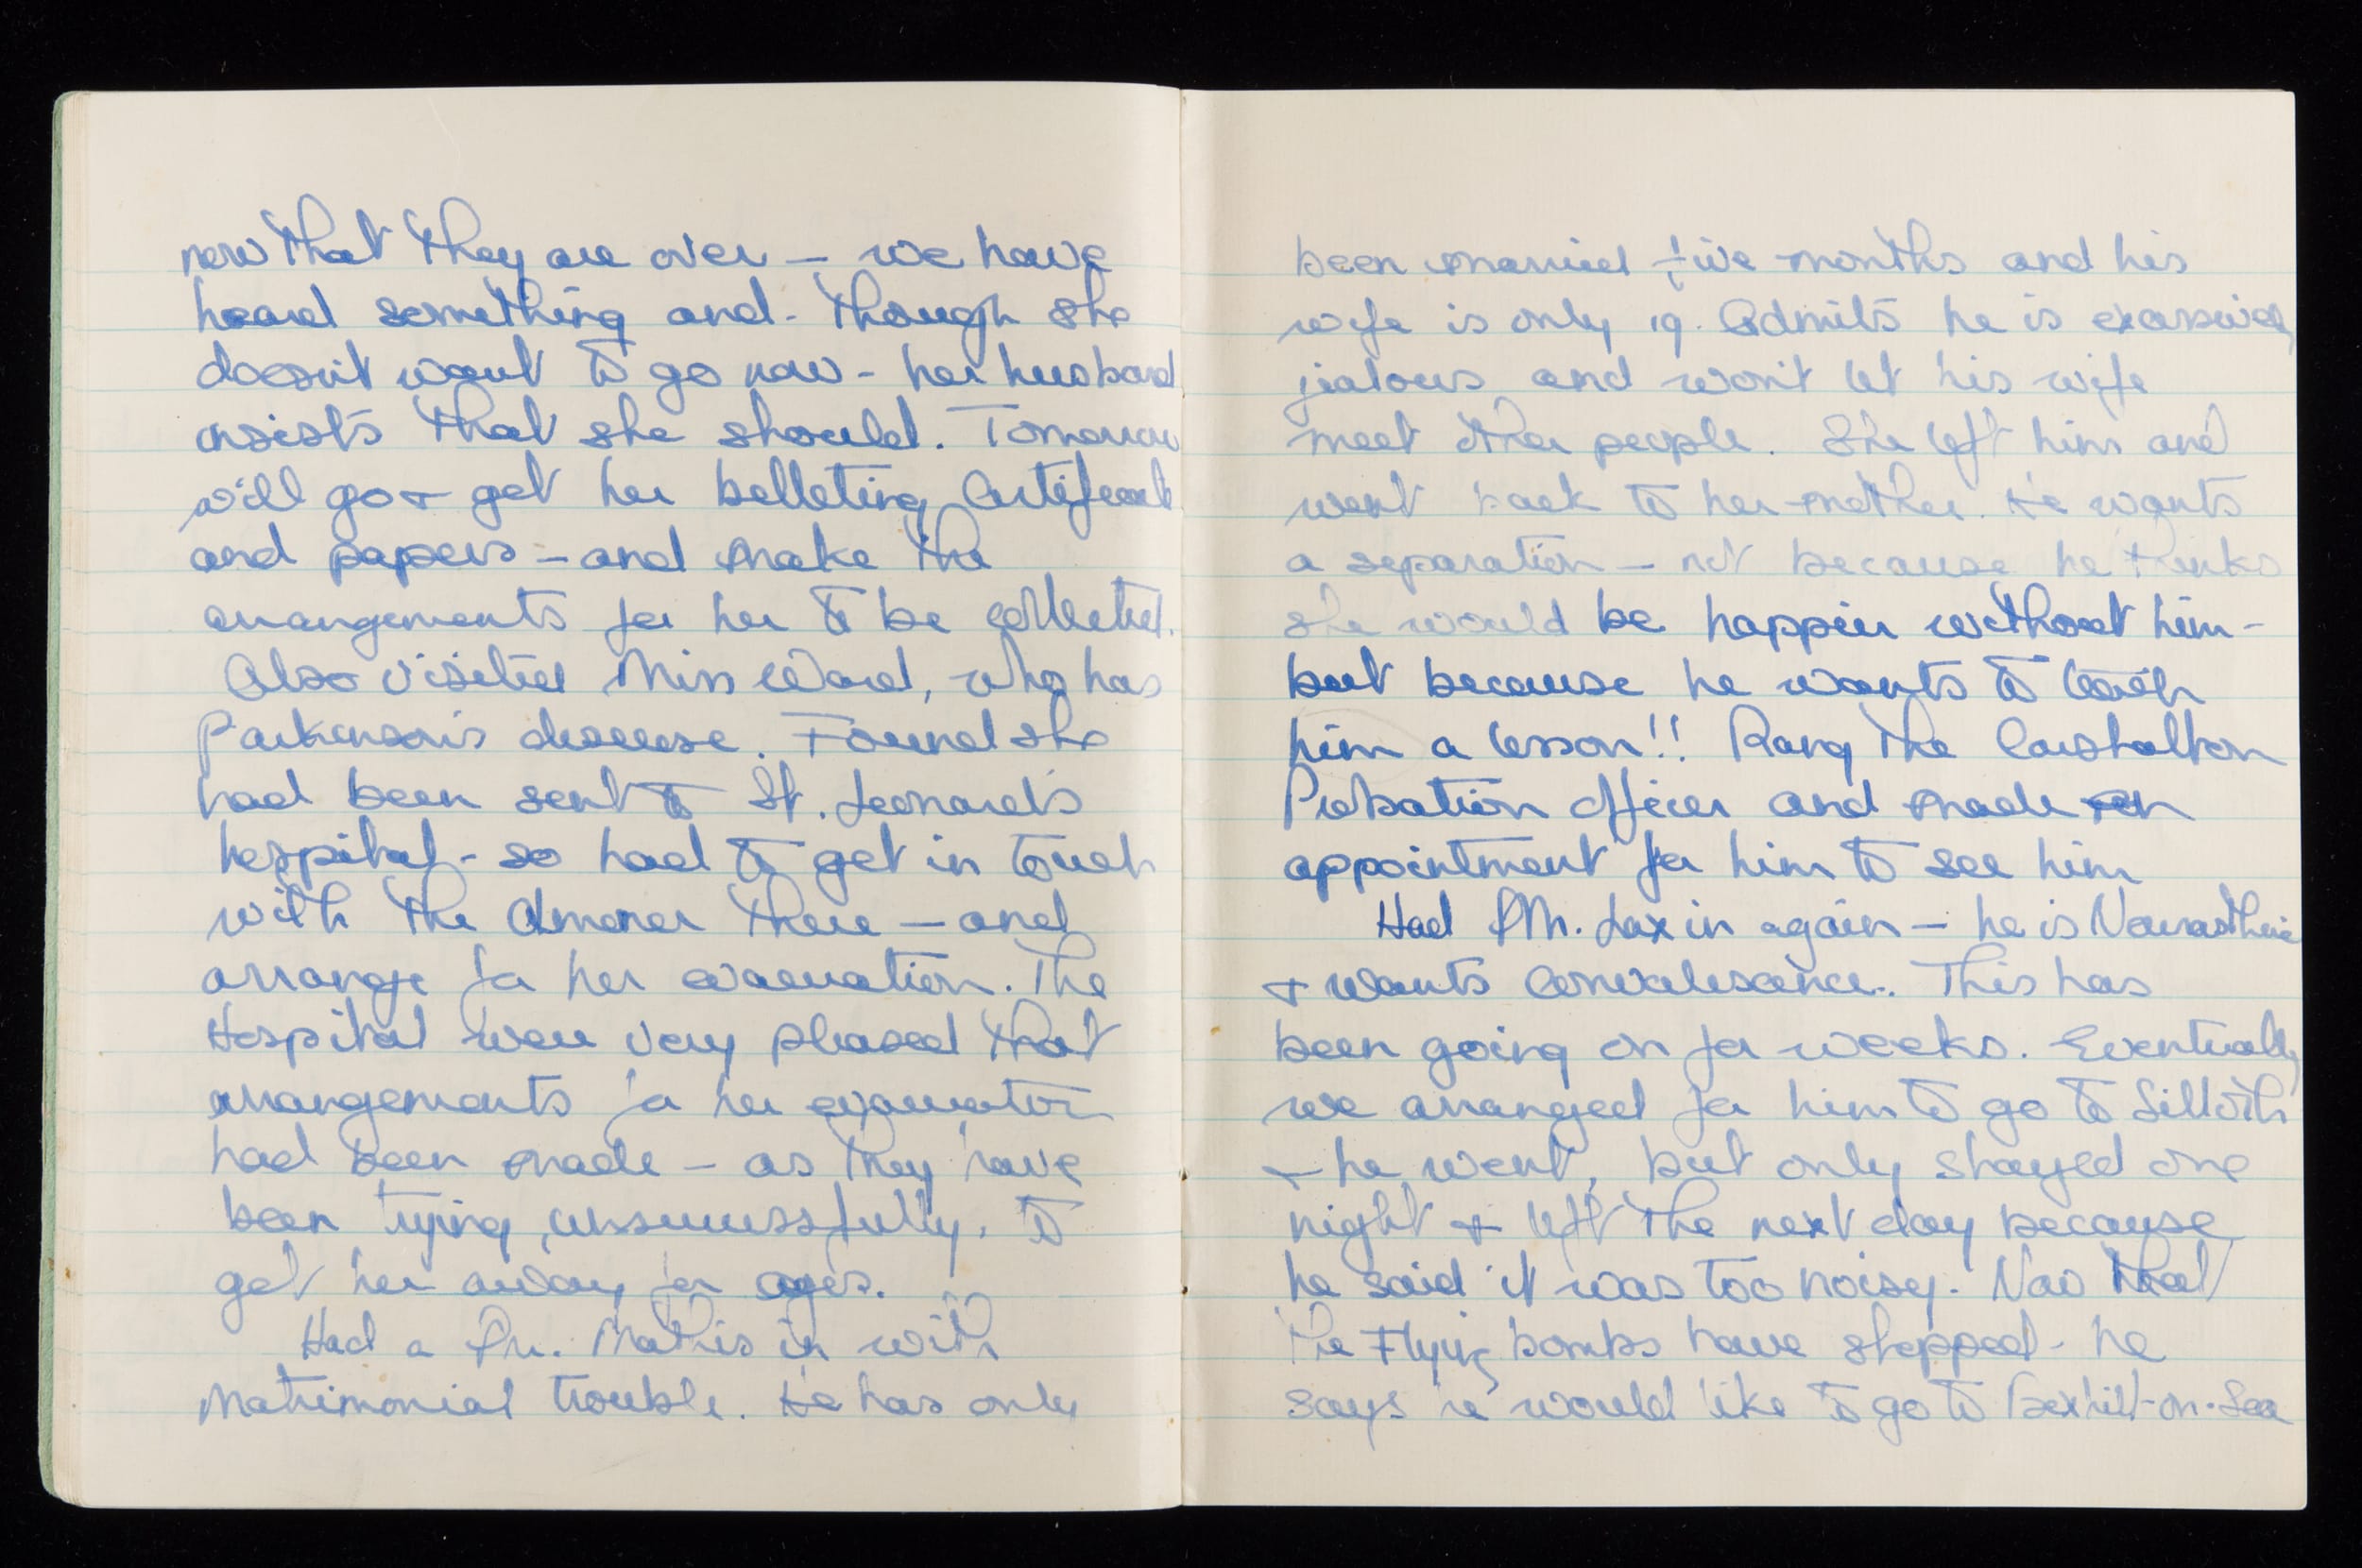 now that they are over – we have
heard something and – though she
doesn't want to go now – her husband
insists that she should. Tomorrow
will go + get her billeting Certificate
and papers – and make the
arrangements for her to be collected.
Also visited Miss Ward, who has
Parkinson's disease. Found she
had been sent to St. Leonard's
hospital – so had to get in touch
with the Almoner there – and
arrange for her evacuation. The
Hospital were very pleased that
arrangements for her evacuation
had been made – as they have
been trying, unsuccessfully, to
get her away for ages.
Had a Mr. Mathis in with
Matrimonial trouble. He has only
been married five months and his
wife is only 19. Admits he is excessively
jealous and won't let his wife
meet other people. She left him and
went back to her mother. He wants
a separation – not because he thinks
she would be happier without him –
but because he wants to teach
him a lesson!! Rang the Carshalton
Probation Officer and made an
appointment for him to see him
Had Mr. Lax in again – he is Neurasthenic
+ wants Convalescence. This has
been going on for weeks. Eventually
we arranged for him to go to Silloth
– he went, but only stayed one
night + left the next day because
he said it was too noisy. Now that
the Flying bombs have stopped – he
says he would like to go to Bexhill-on-Sea